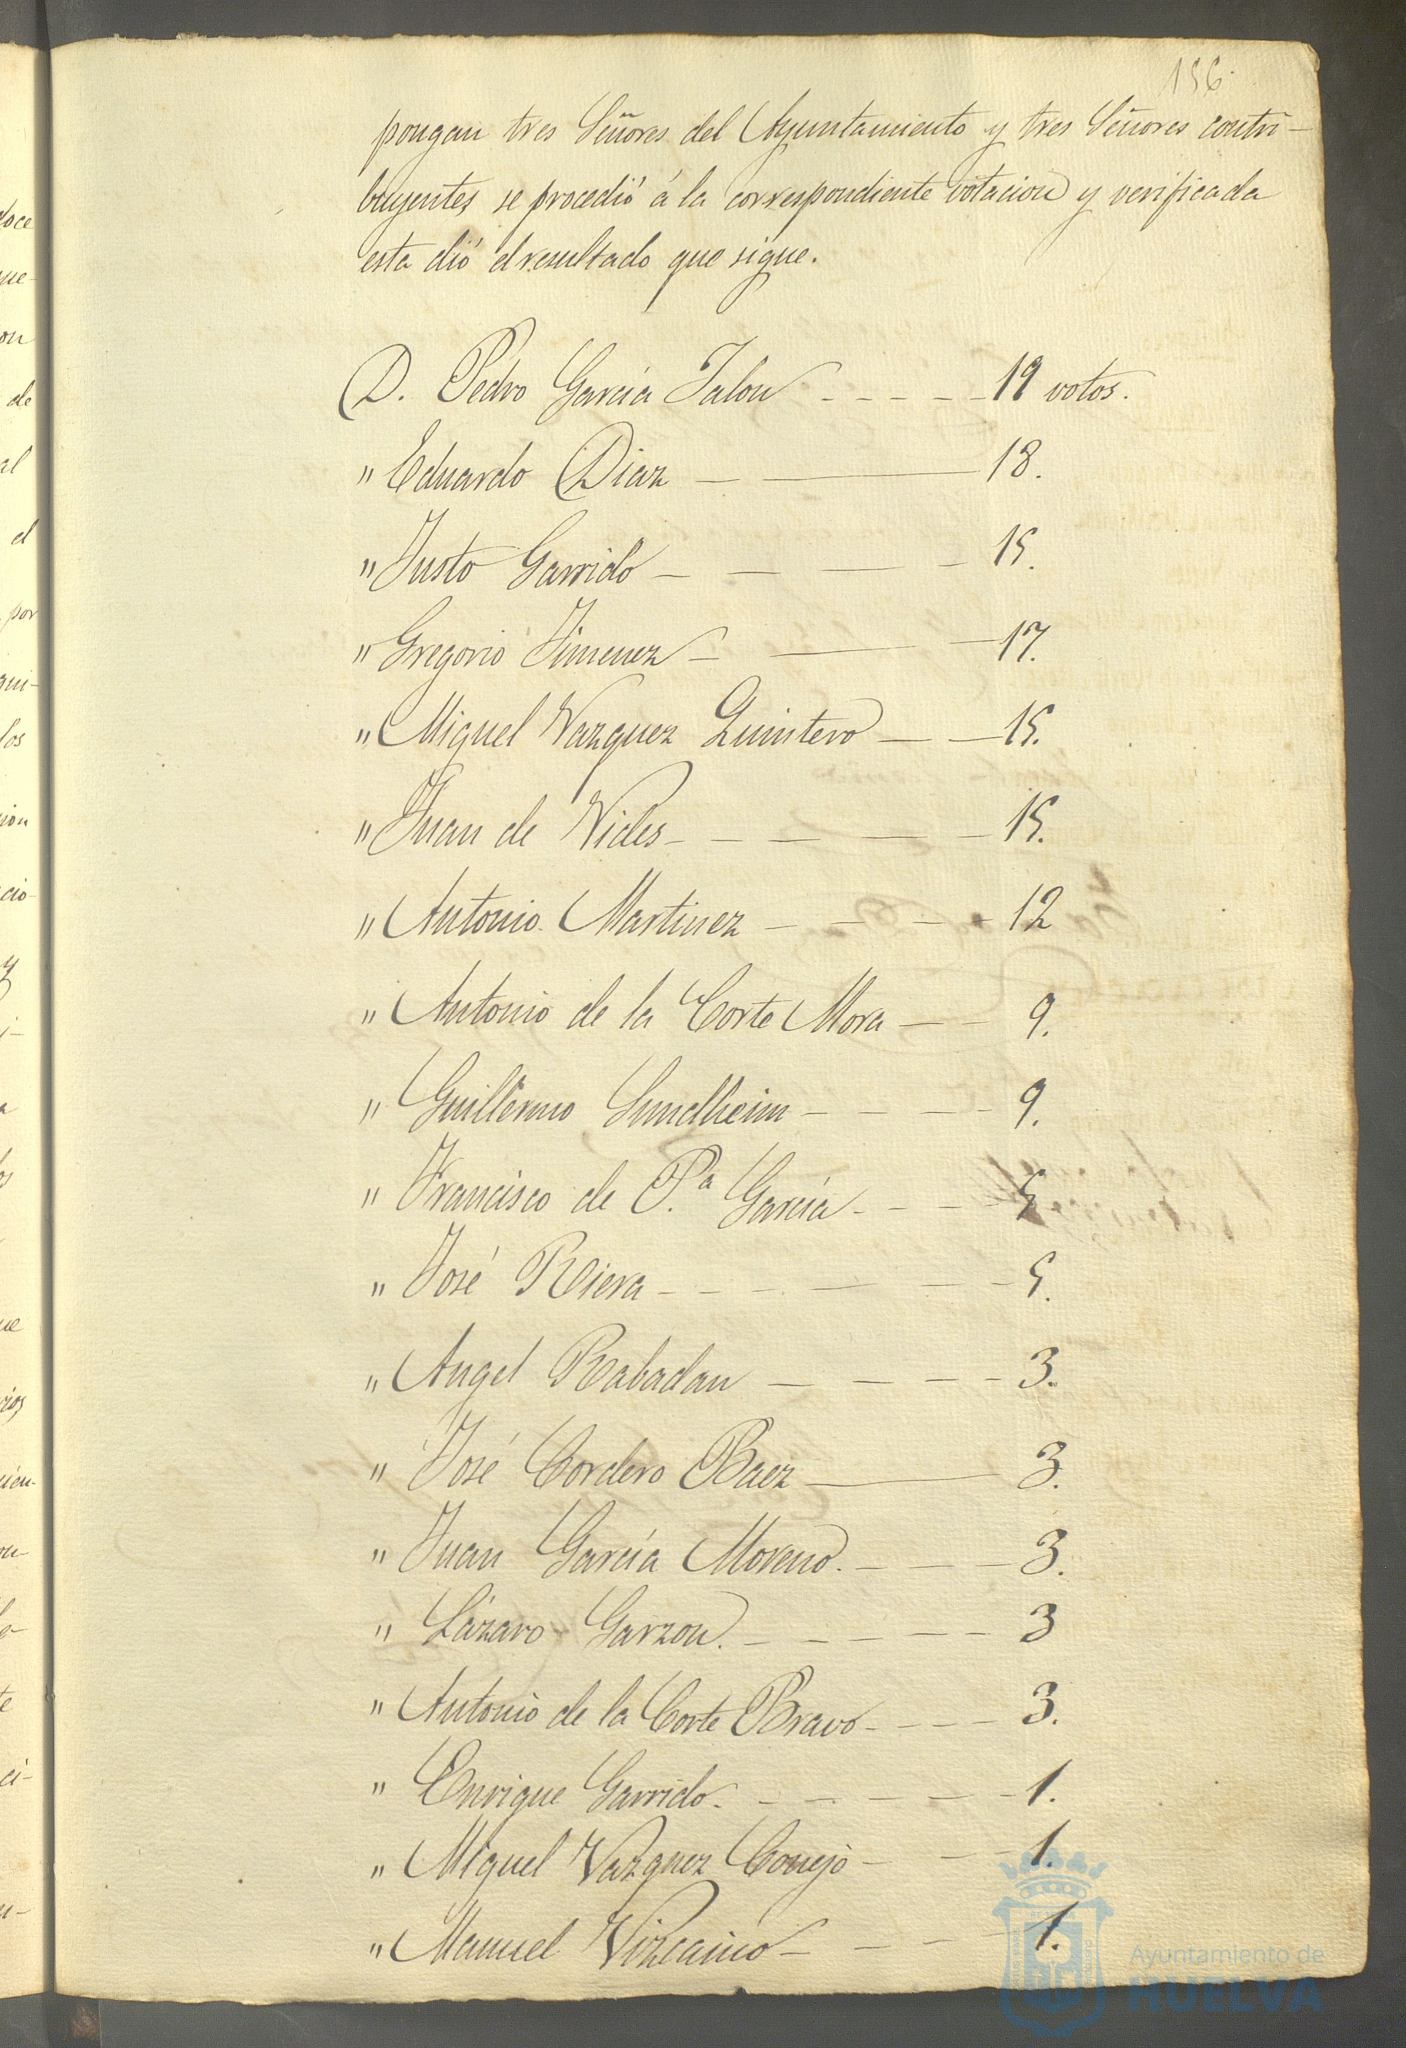 156.
pongan tres Señores del Ayuntamiento y tres Señores contri-
buyentes, se procedió á la correspondiente votacion y verificada
esta dió el resultado que sigue.
D. Pedro García Jalon - - - - - 19 votos.
" Eduardo Diaz - — 18.
" Justo Garrido - - - - 15.
" Gregorio Jimenez - — - 17.
" Miguel Vazquez Quintero - - 15.
" Juan de Vides - - - - - 15.
" Antonio Martinez - - - - 12
" Antonio de la Corte Mora - - 9.
" Guillermo Sundheim - - - - 9.
" Francisco de P.ª García - - - - 5
" José Riera - - - - - - - 5.
" Angel Rabadan - - - - - 3.
" José Cordero Baez — 3.
" Juan García Moreno. - - - 3.
" Lázaro Garzon. - - - - - 3
" Antonio de la Corte Bravo - - - - 3.
" Enrique Garrido - - - - - - 1.
" Miguel Vazquez Conejo - - - 1.
" Manuel Vizcaino - - - - 1.
Ayuntamiento de
HUELVA
doce
que-
on
de
al
el
por
los
cio-
y